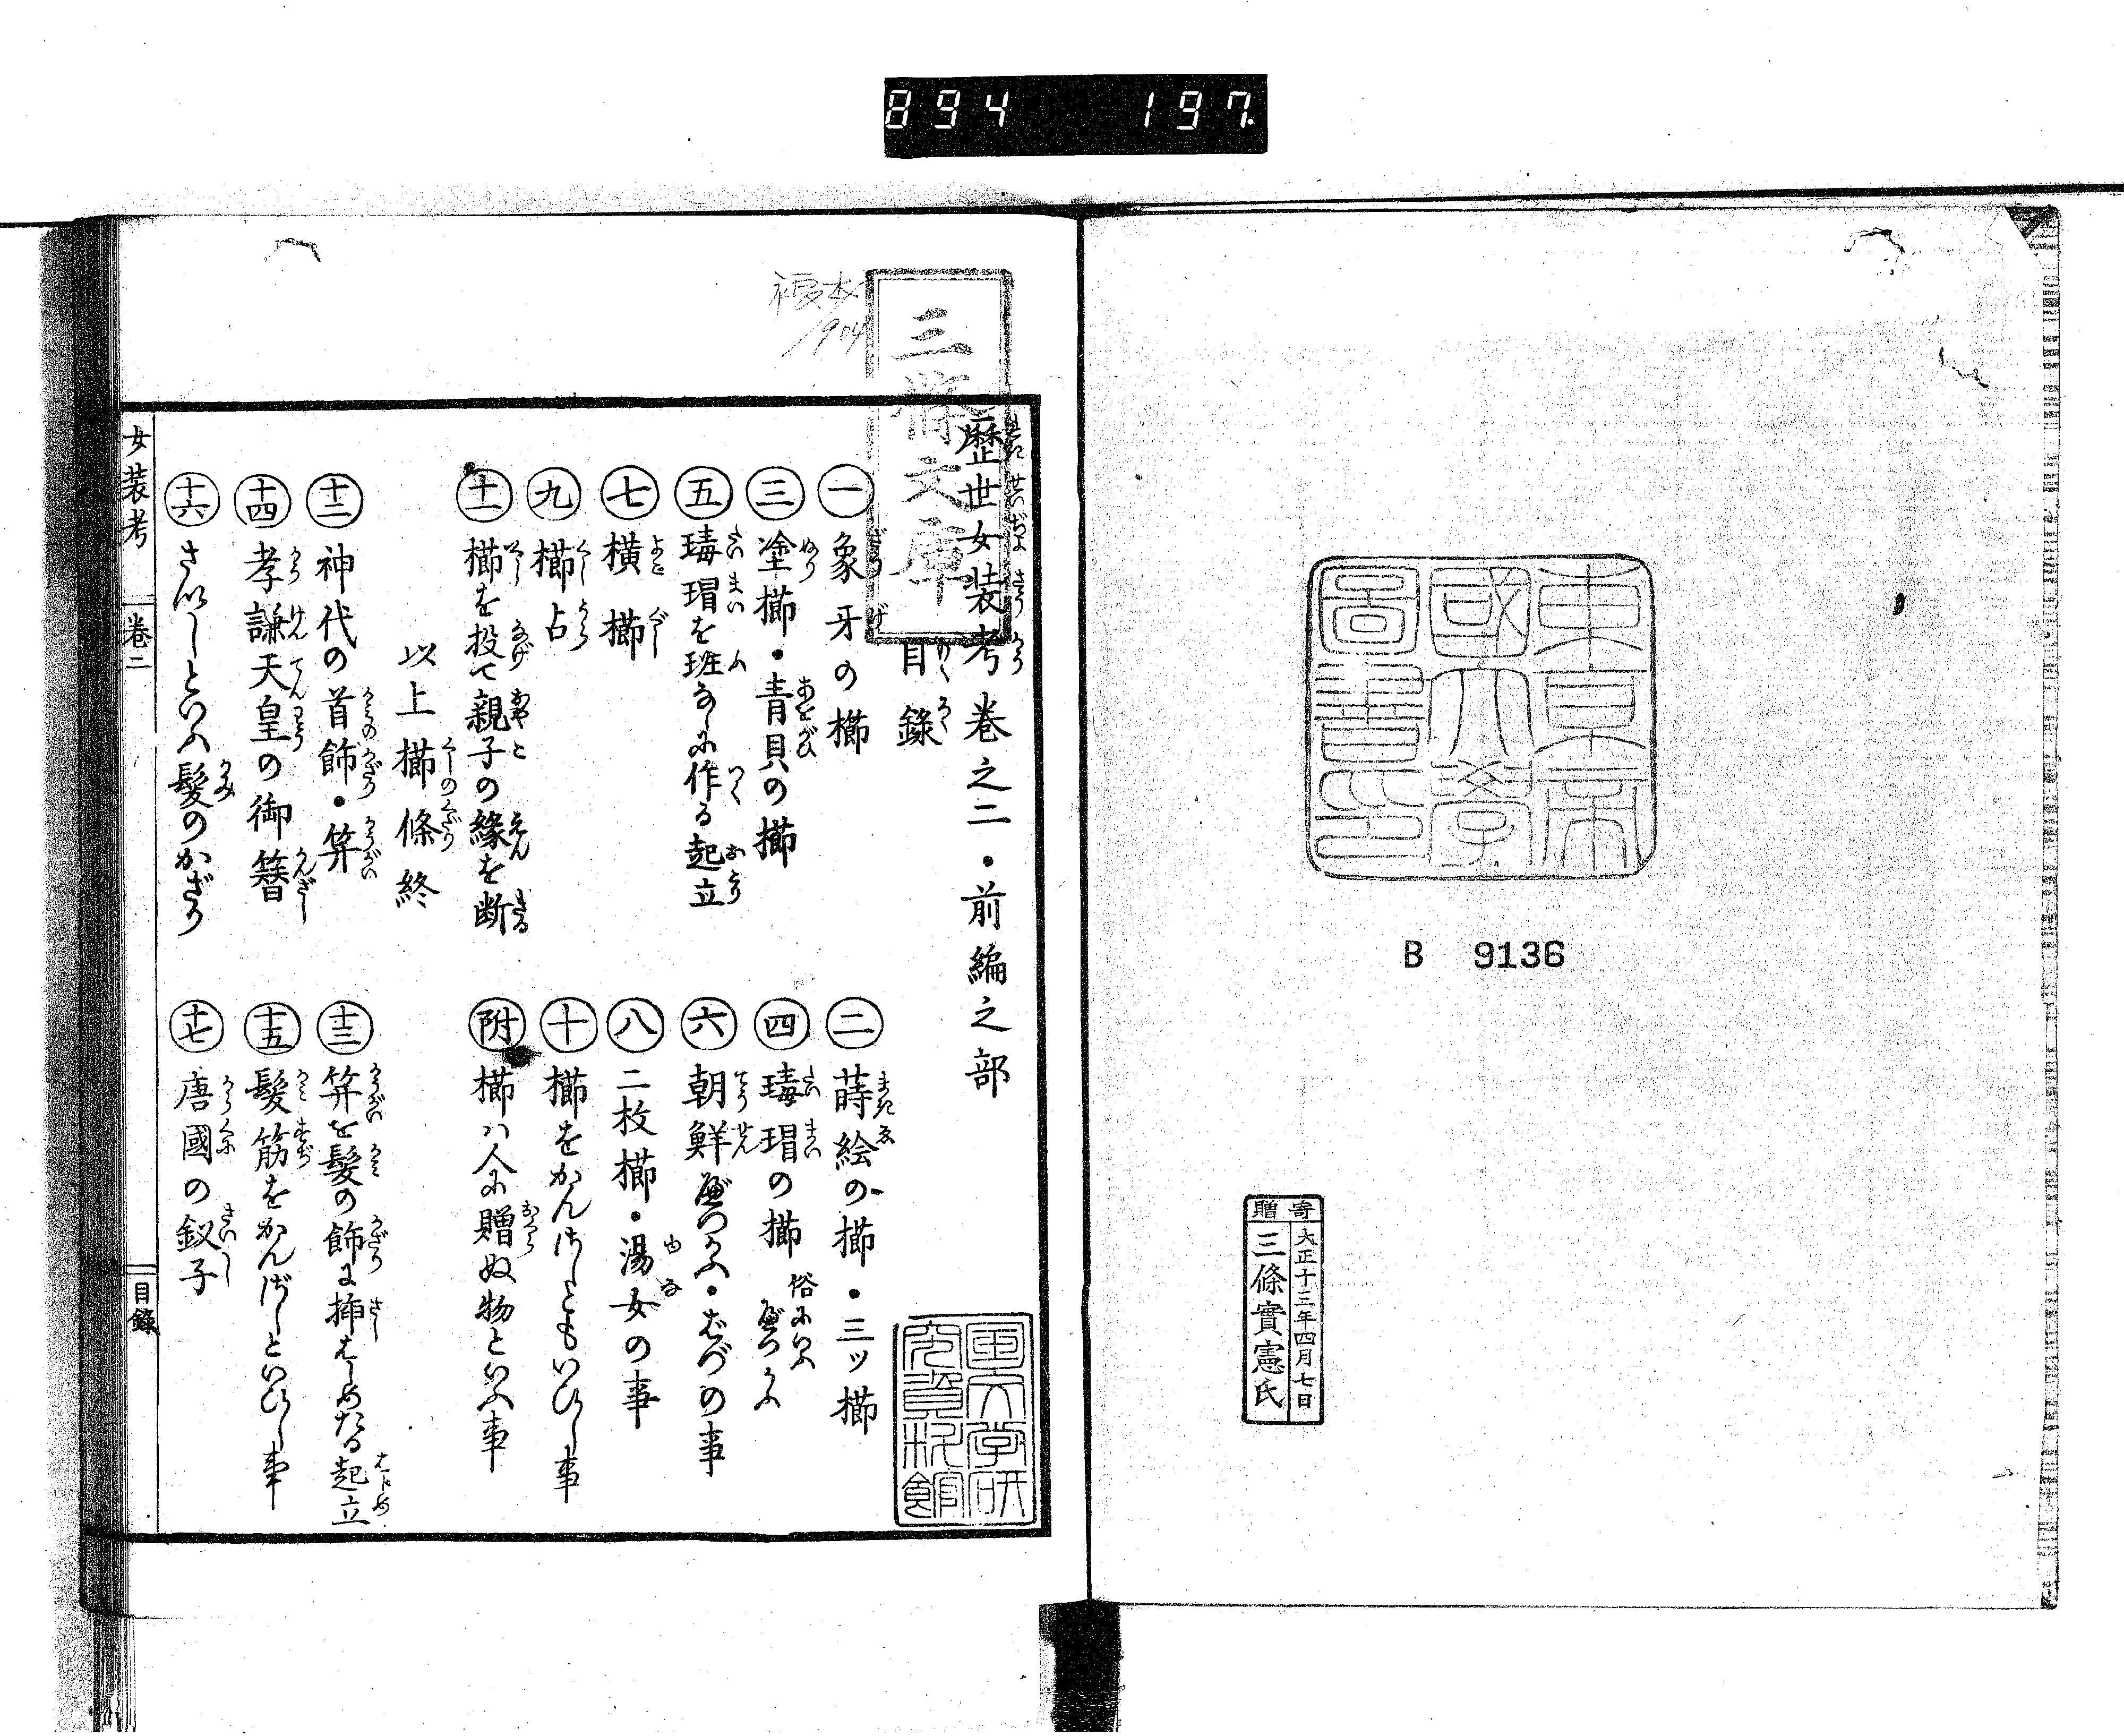 894 197.
東京帝
國大學
圖書印
B 9136
寄贈
大正十三年四月七日
三條實憲氏
複本
1904
三條文庫
歴世女装考巻之二・前編之部
目録
一 象牙の櫛
二 蒔絵の櫛・三ッ櫛
三 塗櫛・青貝の櫛
四 瑇瑁の櫛 俗にいふべつかふ
五 瑇瑁を斑なしに作る起立
六 朝鮮べつかふ・はづの事
七 横櫛
八 二枚櫛・湯女の事
九 櫛占
十 櫛をかんざしともいひし事
十一 櫛を投て親子の縁を断
附 櫛ハ人に贈ぬ物といふ事
以上櫛條終
十二 神代の首飾・笄
十三 笄を髪の飾に挿はじめたる起立
十四 孝謙天皇の御簪
十五 髪筋をかんざしといひし事
十六 さいしといふ髪のかざり
十七 唐國の釵子
国文学研
究資料館
女装考
巻二
目録